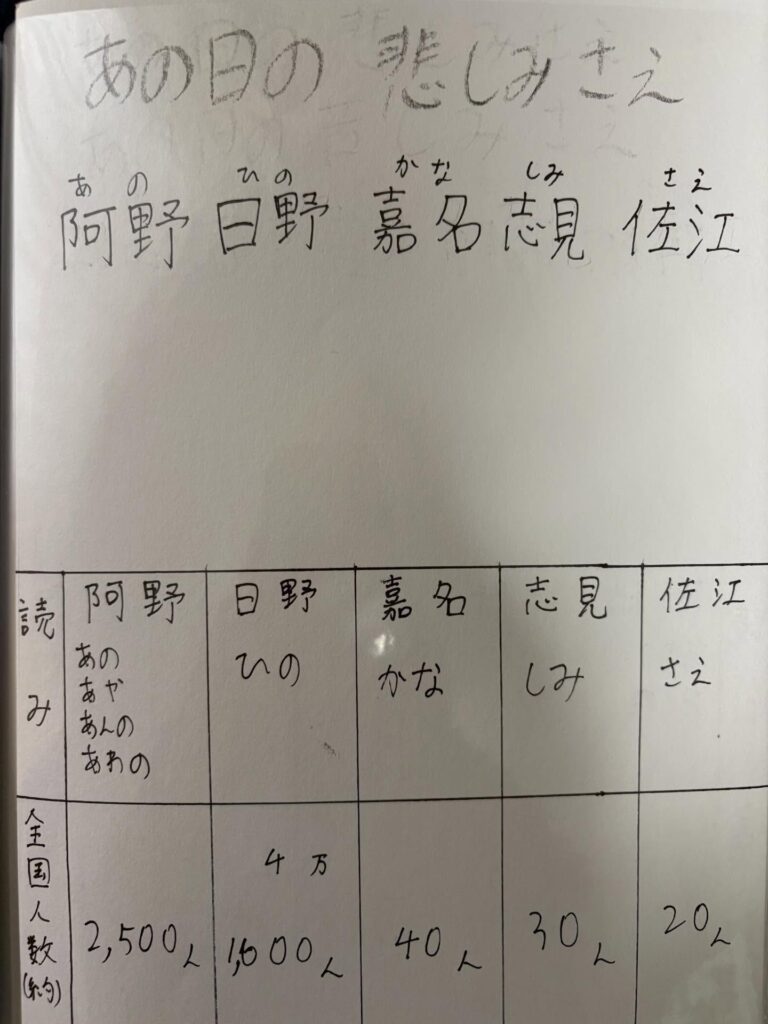 あの日の 悲しみさえ
あ の ひ の か な しみ さえ
阿野 日野 嘉名 志見 佐江
読み 阿野 日野 嘉名 志見 佐江
あの ひの かな しみ さえ
あや
あんの
あわの
全国人数(約) 2,500人 4万1,600人 40人 30人 20人